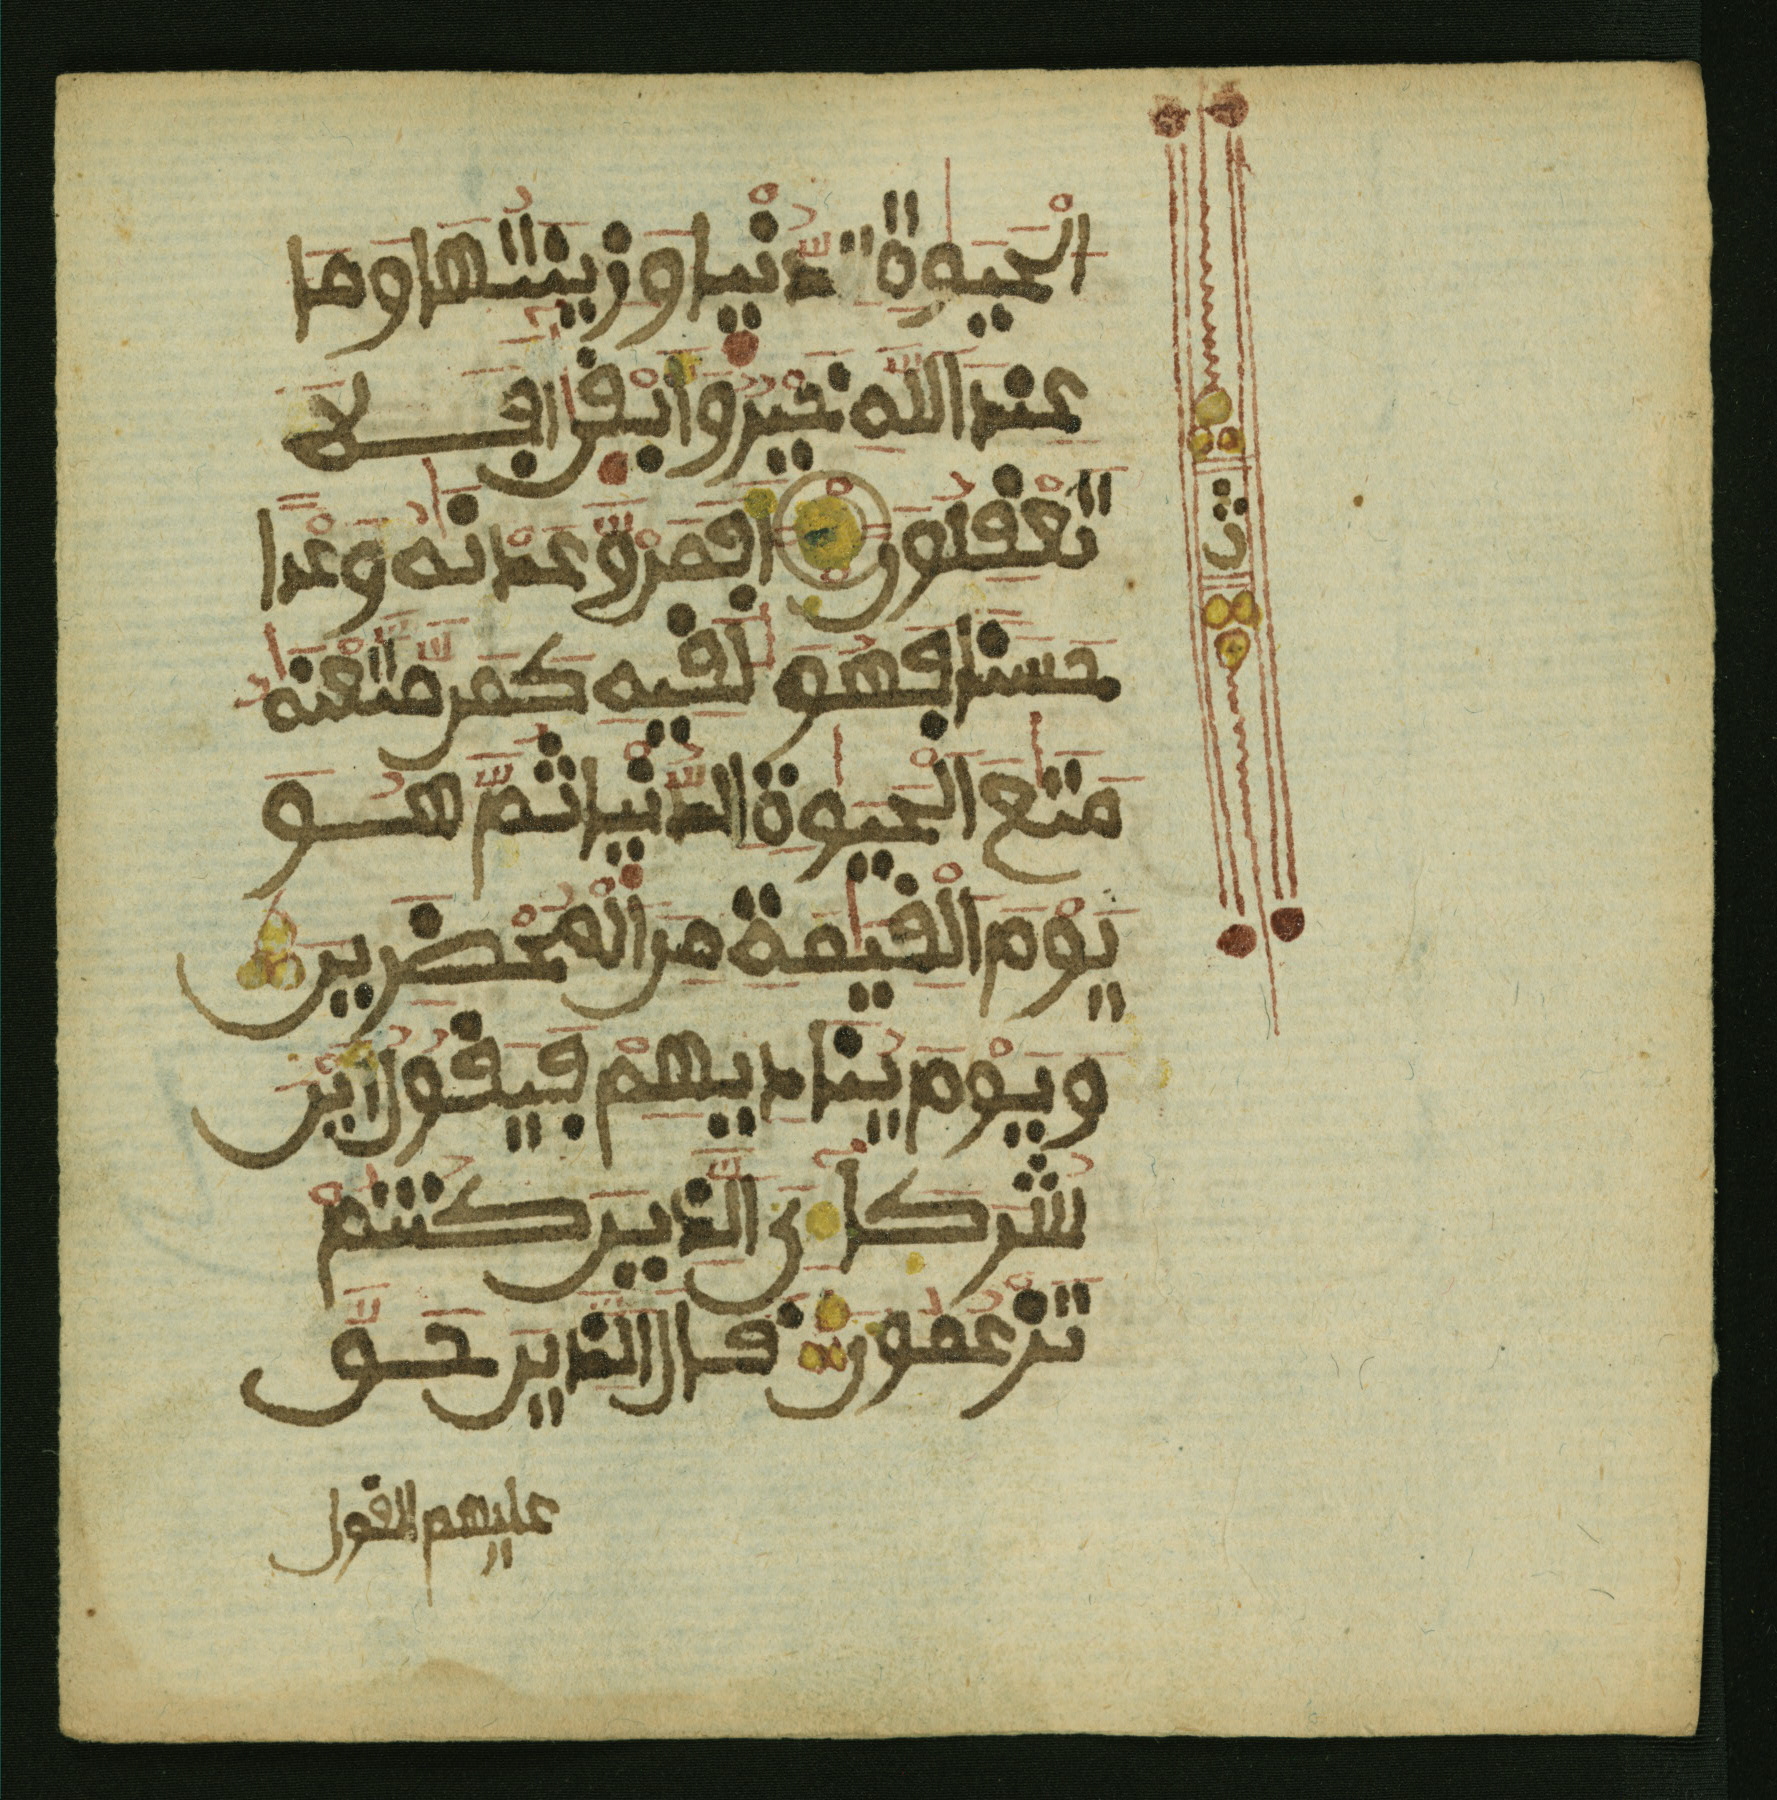 الحيوة الدنيا وزينتها وما
عند الله خير وأبقى أفلا
تعقلون أفمن وعدنه وعدا
حسنا فهو لقيه كمن متعنه
متع الحيوة الدنيا ثم هو
يوم القيمة من المحضرين
ويوم يناديهم فيقول أين
شركاءى الذين كنتم
تزعمون قال الذين حق
عليهم القول
ث